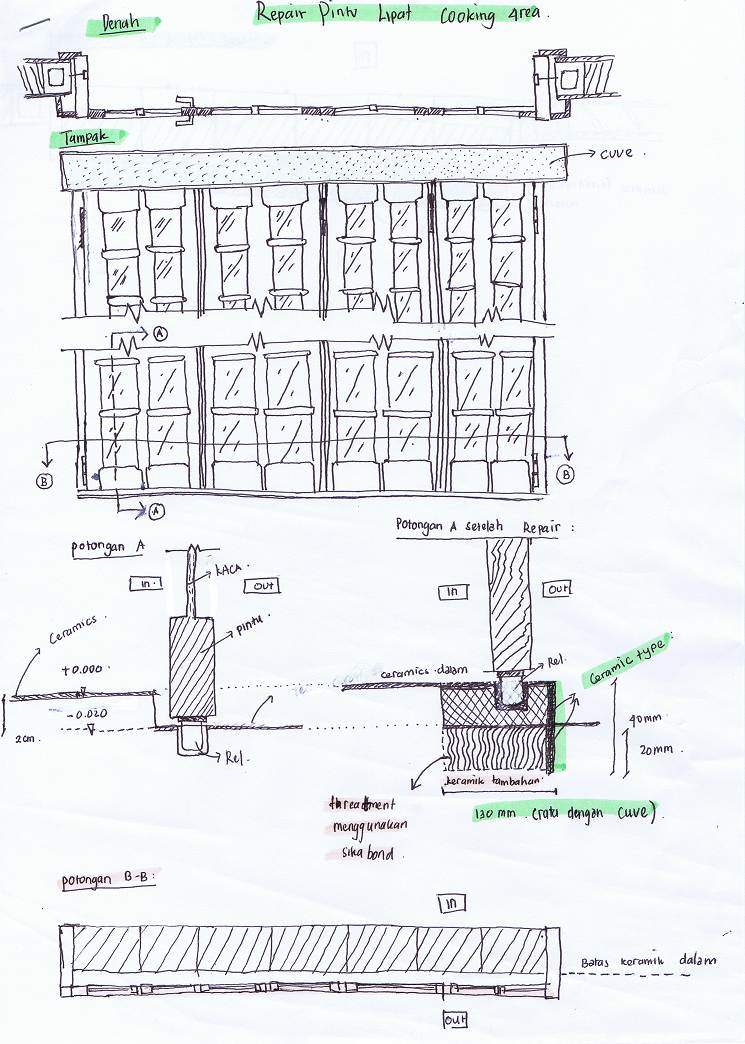 Repair Pintu Lipat Cooking Area.
Denah
Tampak
CUVE.
A
B
B
A
Potongan A
Potongan A setelah Repair :
In.
KACA.
Out
In
Out
Ceramics.
pintu.
+0.000.
-0.020
2cm.
Rel.
ceramics dalam
Rel.
Ceramic type:
40mm.
20mm.
keramik tambahan.
130 mm. (rata dengan cuve).
threadment
menggunakan
sika bond.
potongan B-B:
In
Batas keramik dalam
Out